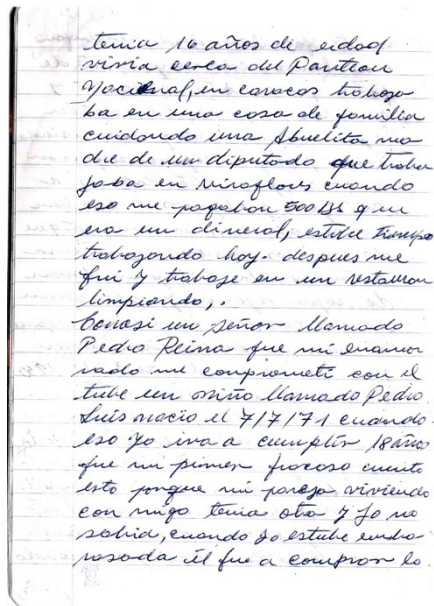 tenia 16 años de edad
vivia cerca del Panteon
Nacional, en caracas trabaja
ba en una casa de familia
cuidando una Abuelita ma
dre de un diputado que traba
jaba en miraflores cuando
eso me pagaban 500 Bs que
era un dineral, estube tiempo
trabajando hay. despues me
fui y trabaje en un restauran
limpiando,.
Conosi un señor llamado
Pedro Reina fue mi enamo
rado me comprometi con el
tube un niño llamado Pedro
Luis nacio el 7/7/71 cuando
eso yo iva a cumplir 18 años
fue mi primer fracaso cuento
esto porque mi pareja viviendo
con migo tenia otra y yo no
sabia, cuando yo estube emba
rasada él fue a comprar lo